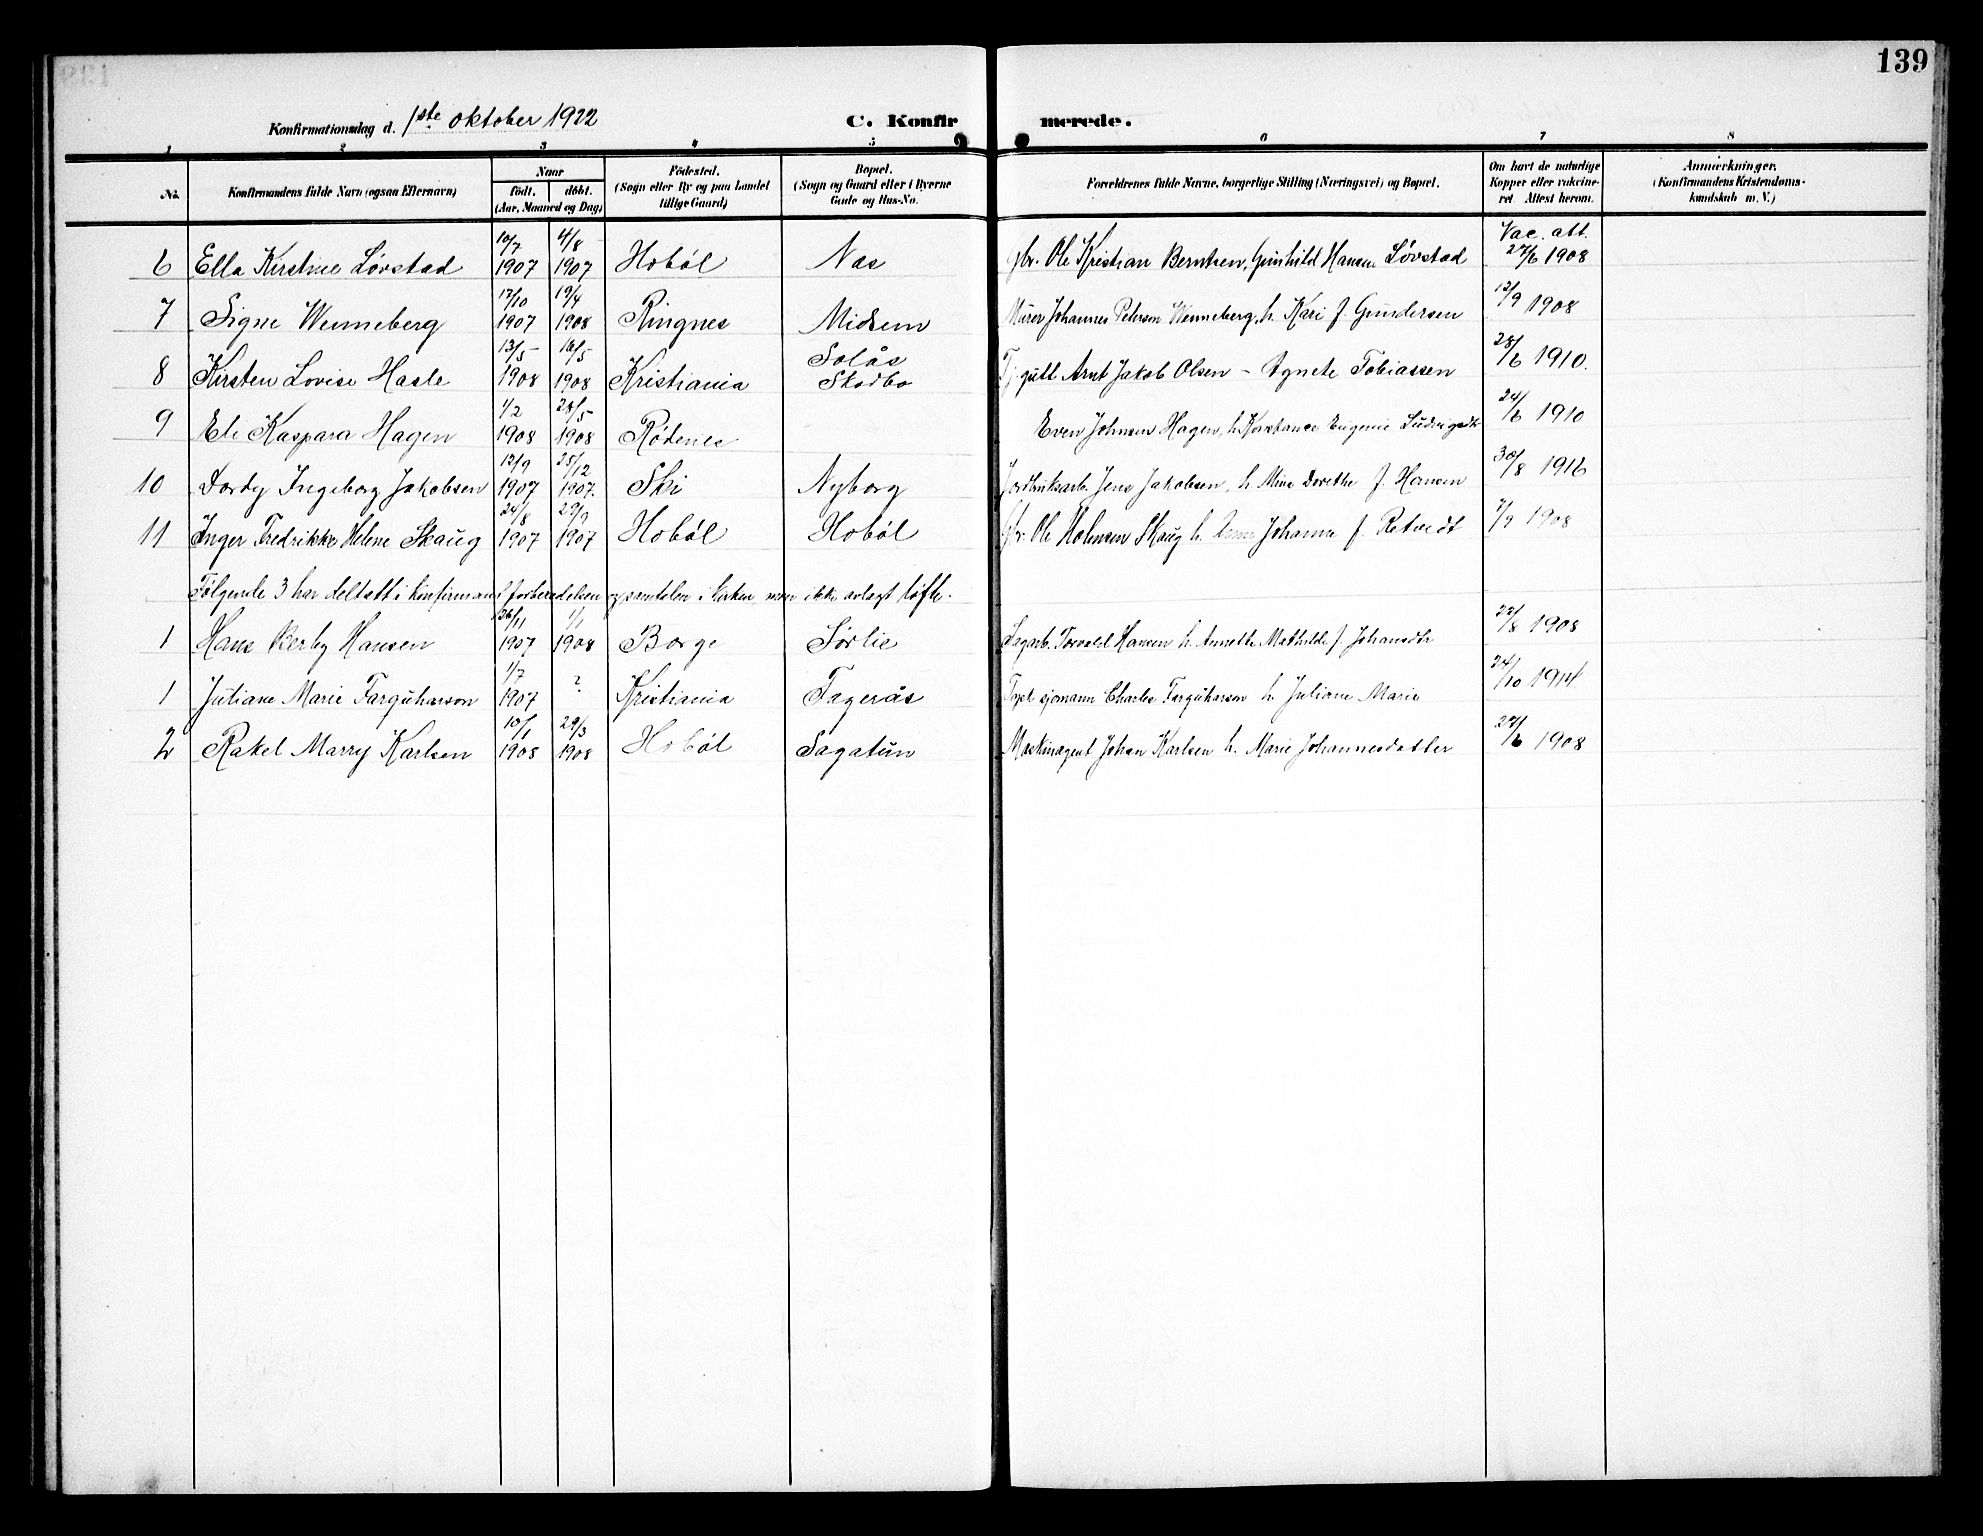 139
Konfirmationsdag d. 1ste oktober 1922 C. Konfirmerede.
1 2 3 4 5 6 7 8
No. Konfirmandens fulde Navn (ogsaa Efternavn) Naar födt. döbt. (Aar, Maaned og Dag) Födested. (Sogn eller By og paa Landet tillige Gaard) Bopæl. (Sogn og Gaard eller i Byerne Gade og Hus-No. Forældrenes fulde Navne, borgerlige Stilling (Næringsvei) og Bopæl. Om havt de naturlige Kopper eller vakcineret Attest herom. Anmærkninger. (Konfirmandens Kristendomskundskab m. V.)
6 Ella Kirstine Løvstad 10/7 1907 4/8 1907 Hobøl Næs Gbr. Ole Kristian Berntsen, Gunhild Hansen Løvstad Vac. att. 27/6 1908
7 Signe Wenneberg 17/10 1907 19/4 1908 Ringnes Midsem Murer Johannes Peterson Wenneberg, h. Kari f. Gundersen 12/9 1908
8 Kirsten Lovise Hasle 13/5 1908 16/5 1908 Kristiania Solås Skodbo Arnt Jakob Olsen – Agnete Tobiassen 28/6 1910.
9 Eli Kaspara Hagen 1/2 1908 28/5 1908 Rødenes Even Johnsen Hagen, h. Konstance Eugenie Ludvigsdtr 24/6 1910
10 Dordy Ingeborg Jakobsen 12/9 1907 25/12 1907. Ski Nyborg Jordbruksarb. Jens Jakobsen, h. Mina Dorethe f. Hansen 30/8 1916
11 Inger Fredrikke Helene Skaug 24/8 1907 29/9 1907 Hobøl Hobøl Gbr. Ole Holmsen Skaug h. Johanna f. Retvedt 7/9 1908
Følgende 3 har deltatt i konfirmantforberedelsen og samtalen i kirken, men ikke avlagt løfte.
1 Hans Berby Hansen 26/11 1907 1/1 1908 Borge Sørlie Sagarb. Torvald Hansen h. Annette Mathilde f. Johansdtr 22/8 1908
1 Juliane Marie Farguharson 1/7 1907 ? Kristiania Fagerås sjømann Charles Farguharson h. Juliane Marie 24/10 1914
2 Rakel Marry Karlsen 10/1 1908 29/3 1908 Hobøl Sagatun Maskinagent Johan Karlsen h. Marie Johannesdatter 27/6 1908